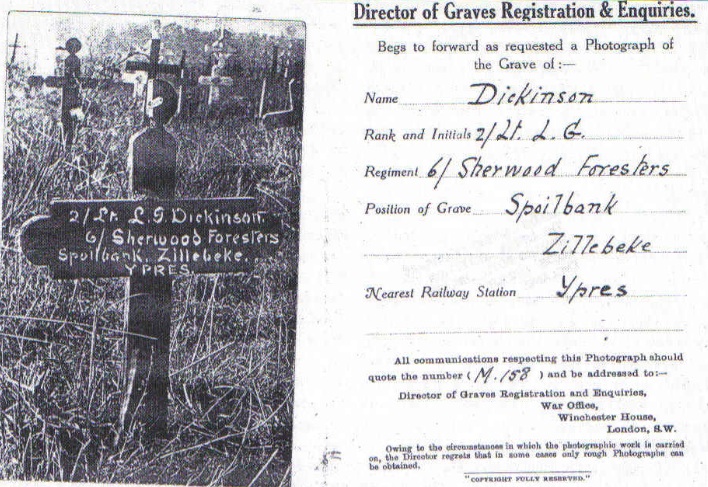 2/Lt. L.G Dickinson.
6/ Sherwood Foresters
Spoilbank, Zillebeke.
YPRES.
Director of Graves Registration & Enquiries.
Begs to forward as requested a Photograph of
the Grave of :—
Name Dickinson
Rank and Initials 2/Lt. L. G.
Regiment 6/ Sherwood Foresters
Position of Grave Spoilbank
Zillebeke
Nearest Railway Station Ypres
All communications respecting this Photograph should
quote the number ( M.158 ) and be addressed to:—
Director of Graves Registration and Enquiries,
War Office,
Winchester House,
London, S.W.
Owing to the circumstances in which the photographic work is carried
on, the Director regrets that in some cases only rough Photographs can
be obtained.
"COPYRIGHT FULLY RESERVED."